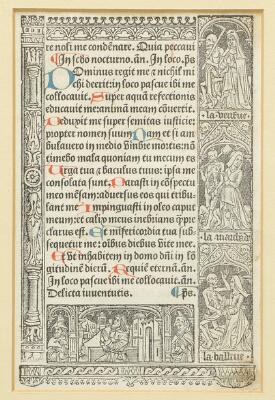 re nosti me condẽnare. Quia peccaui
In scḋo nocturno. añ. In loco. ps̃
Dominus regit me ⁊ nichil mi
chi deerit: in loco pascue ibi me
collocauit. Super aquã refectionis
educauit me: animã meam cõuertit.
Deduxit me super semitas iusticie:
propter nomen suum Nam et si am
bulauero in medio vmbre mortis: nõ
timebo mala: quoniam tu mecum es
Uirga tua ⁊ baculus tuus: ipsa me
consolata sunt. Parasti in cõspectu
meo mẽsam: aduersus eos qui tribu
lant me Impinguasti in oleo caput
meum: et calix meus inebrians q̃ppre
clarus est. Et misericordia tua sub
sequetur me: oĩbus diebus vite mee.
Et vt inhabitem in domo dñi in lõ
gitudinẽ dierũ. Requiẽ eternã. añ.
In loco pascue ibi me collocauit. añ.
Delicta iuuentutis. ps̃.
la veufue
la marchãde
la balliue